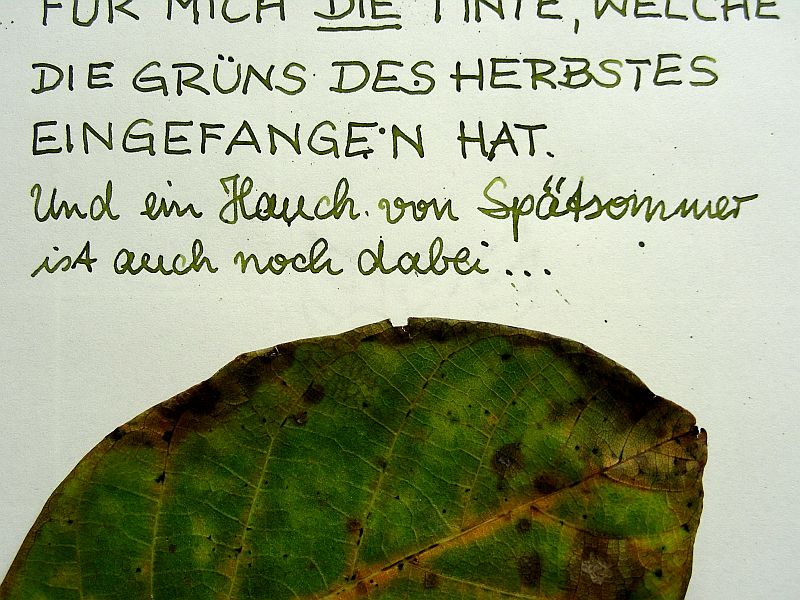 FÜR MICH DIE TINTE, WELCHE
DIE GRÜNS DES HERBSTES
EINGEFANGEN HAT.
Und ein Hauch von Spätsommer
ist auch noch dabei...